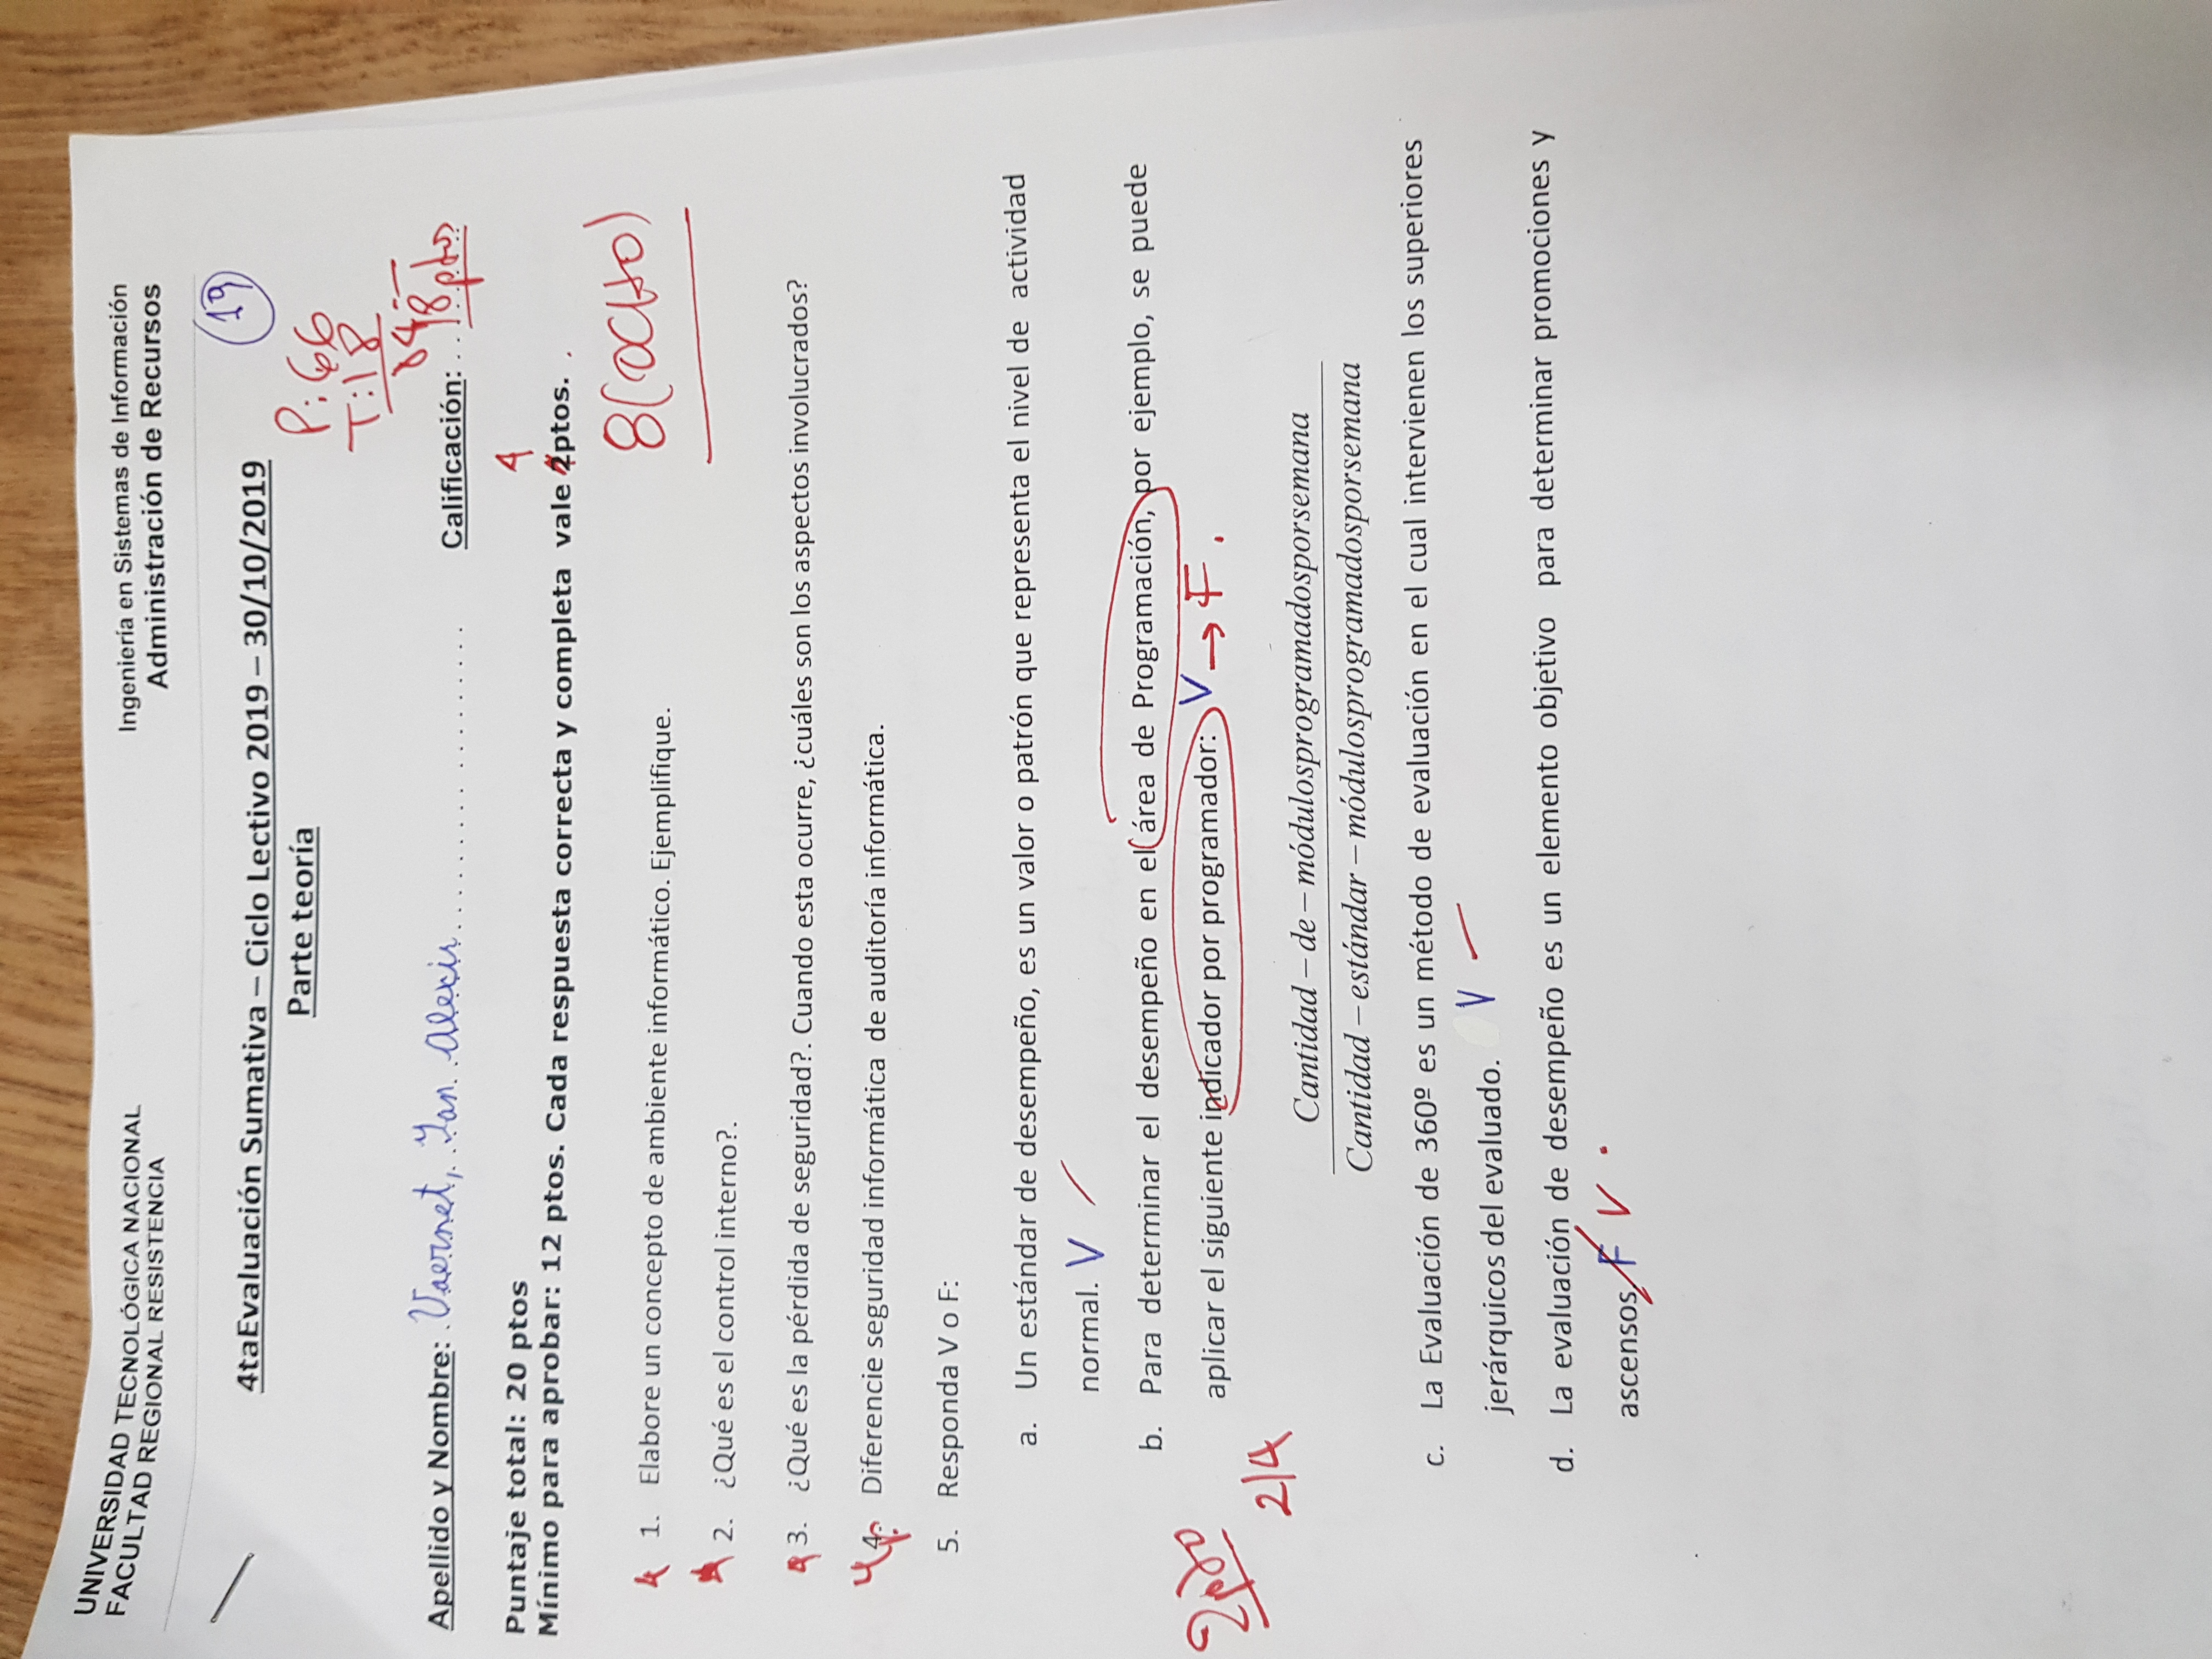 UNIVERSIDAD TECNOLÓGICA NACIONAL
FACULTAD REGIONAL RESISTENCIA
Ingeniería en Sistemas de Información
Administración de Recursos
19
4taEvaluación Sumativa – Ciclo Lectivo 2019 – 30/10/2019
Parte teoría
P: 66
T: 18
84
Apellido y Nombre: Vaernet, Yan Alexis
Calificación: 18 ptos
Puntaje total: 20 ptos
4
Mínimo para aprobar: 12 ptos. Cada respuesta correcta y completa vale 2ptos. .
8 (OCHO)
4 1. Elabore un concepto de ambiente informático. Ejemplifique.
4 2. ¿Qué es el control interno?.
4 3. ¿Qué es la pérdida de seguridad?. Cuando esta ocurre, ¿cuáles son los aspectos involucrados?
4p. 4. Diferencie seguridad informática de auditoría informática.
5. Responda V o F:
a. Un estándar de desempeño, es un valor o patrón que representa el nivel de actividad
normal. V
b. Para determinar el desempeño en el área de Programación, por ejemplo, se puede
aplicar el siguiente indicador por programador: V → F .
2pto
2/4
Cantidad – de – módulosprogramadosporsemana
Cantidad – estándar – módulosprogramadosporsemana
c. La Evaluación de 360º es un método de evaluación en el cual intervienen los superiores
jerárquicos del evaluado. V
d. La evaluación de desempeño es un elemento objetivo para determinar promociones y
ascensos. F V .